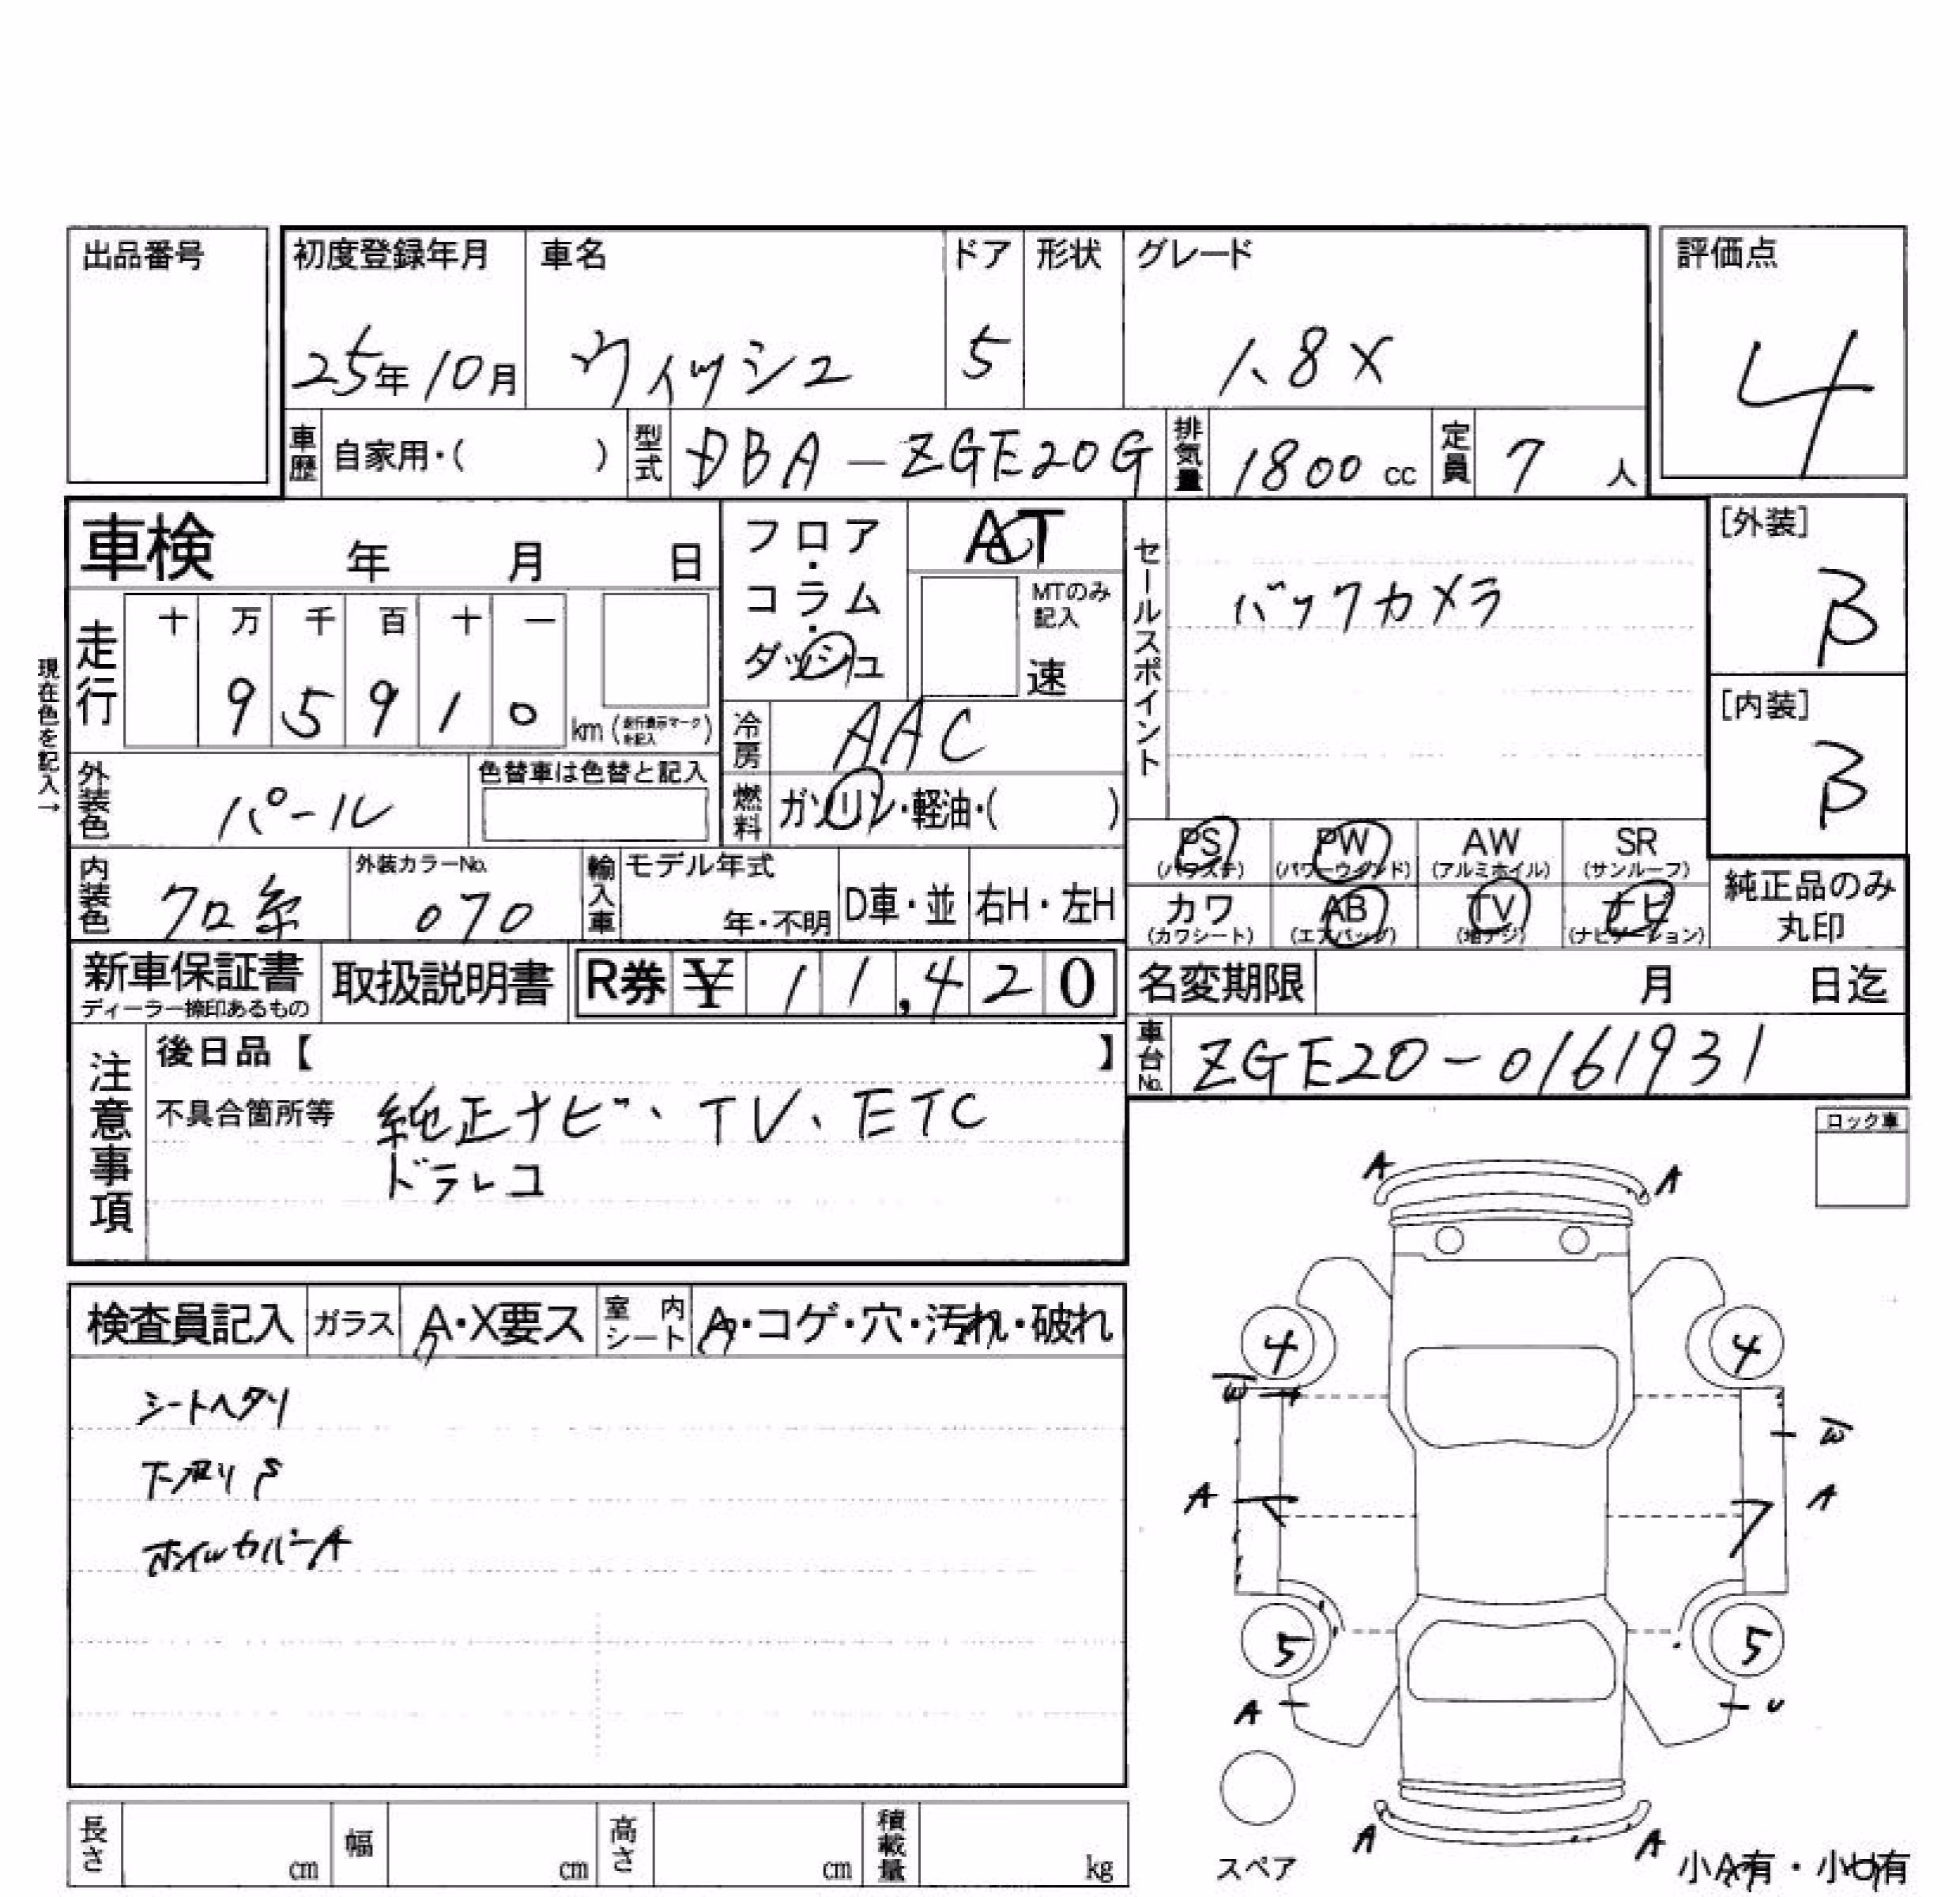 出品番号
初度登録年月 車名 ドア 形状 グレード 評価点
25年10月 ウィッシュ 5 1.8X 4
車歴 自家用・( ) 型式 DBA-ZGE20G 排気量 1800cc 定員 7人
車検 年 月 日
フロア・コラム・ダッシュ
AT
MTのみ記入
速
セールスポイント
バックカメラ
[外装]
B
[内装]
B
現在色を記入→
走行 十 万 千 百 十 一
9 5 9 1 0 km (走行表示マークを記入)
冷房 AAC
外装色 パール 色替車は色替と記入
燃料 ガソリン・軽油・( )
PS (パワステ) PW (パワーウィンド) AW (アルミホイル) SR (サンルーフ)
カワ (カワシート) AB (エアバッグ) TV (地デジ) ナビ (ナビゲーション)
純正品のみ
丸印
内装色 クロ系 外装カラーNo. 070 輸入車 モデル年式 年・不明 D車・並 右H・左H
新車保証書 ディーラー捺印あるもの 取扱説明書 R券 ¥ 11,420
名変期限 月 日迄
車台No. ZGE20-0161931
注意事項
後日品【 】
不具合箇所等 純正ナビ、TV、ETC
ドラレコ
ロック車
検査員記入 ガラス A・X要ス 室内シート A・コゲ・穴・汚れ・破れ
シートヘタリ
下廻りS
ホイルカバーA
A A
4 4
W W
A A
5 5
A U
A A
スペア
小A有・小U有
長さ cm 幅 cm 高さ cm 積載量 kg